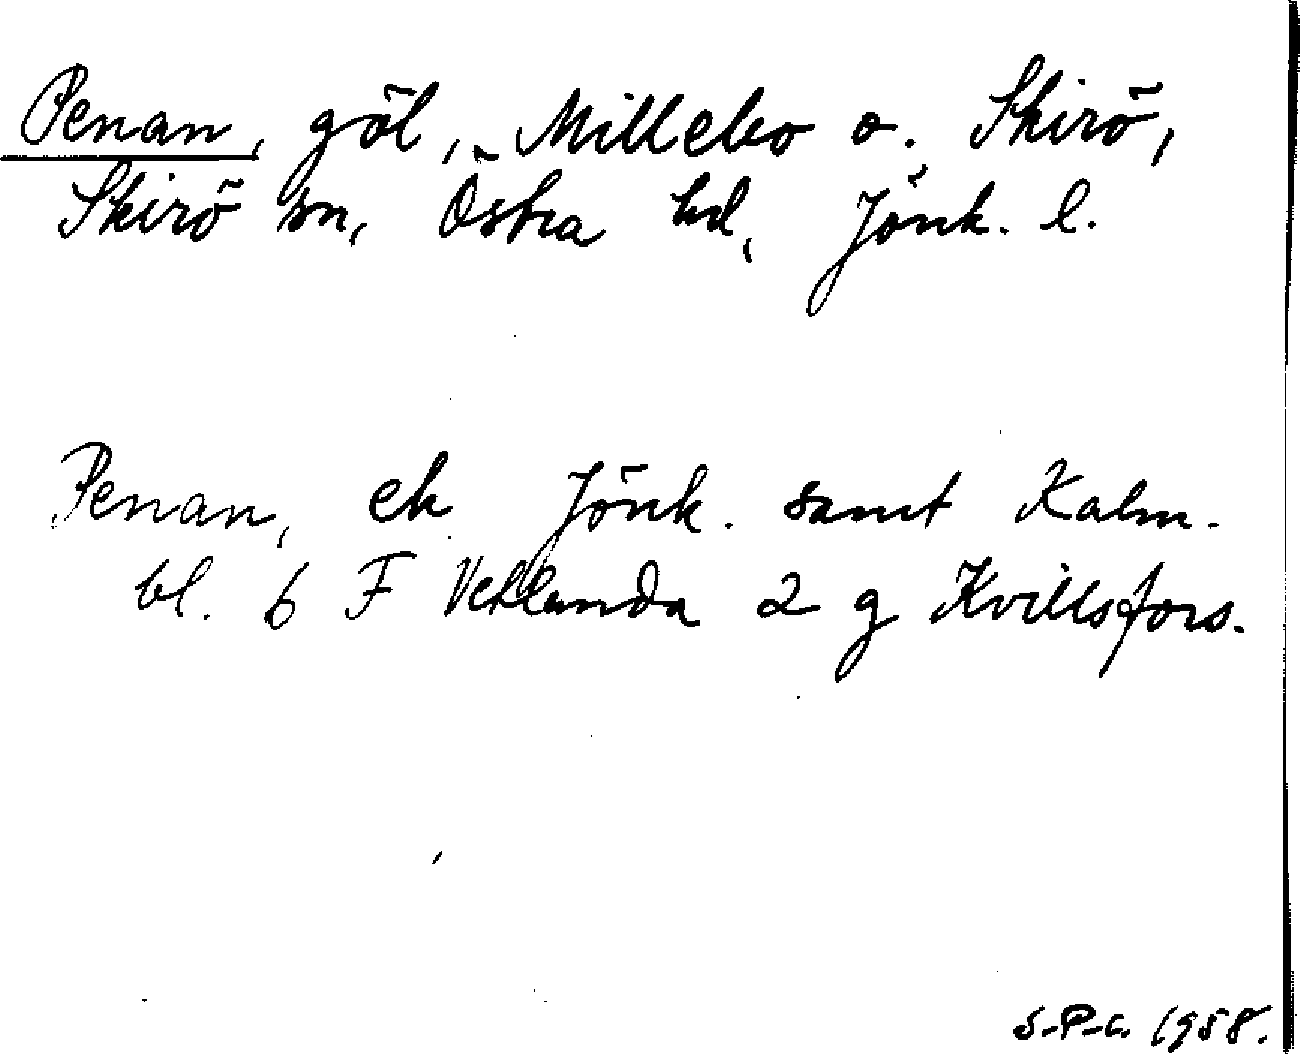 Penan, göl, Millebo o. Skirö,
Skirö sn, Östra hd, Jönk. l.
Penan, ek Jönk. samt Kalm.
bl. 6 F Vetlanda 2 g Kvillsfors.
S-P-c. 1958.